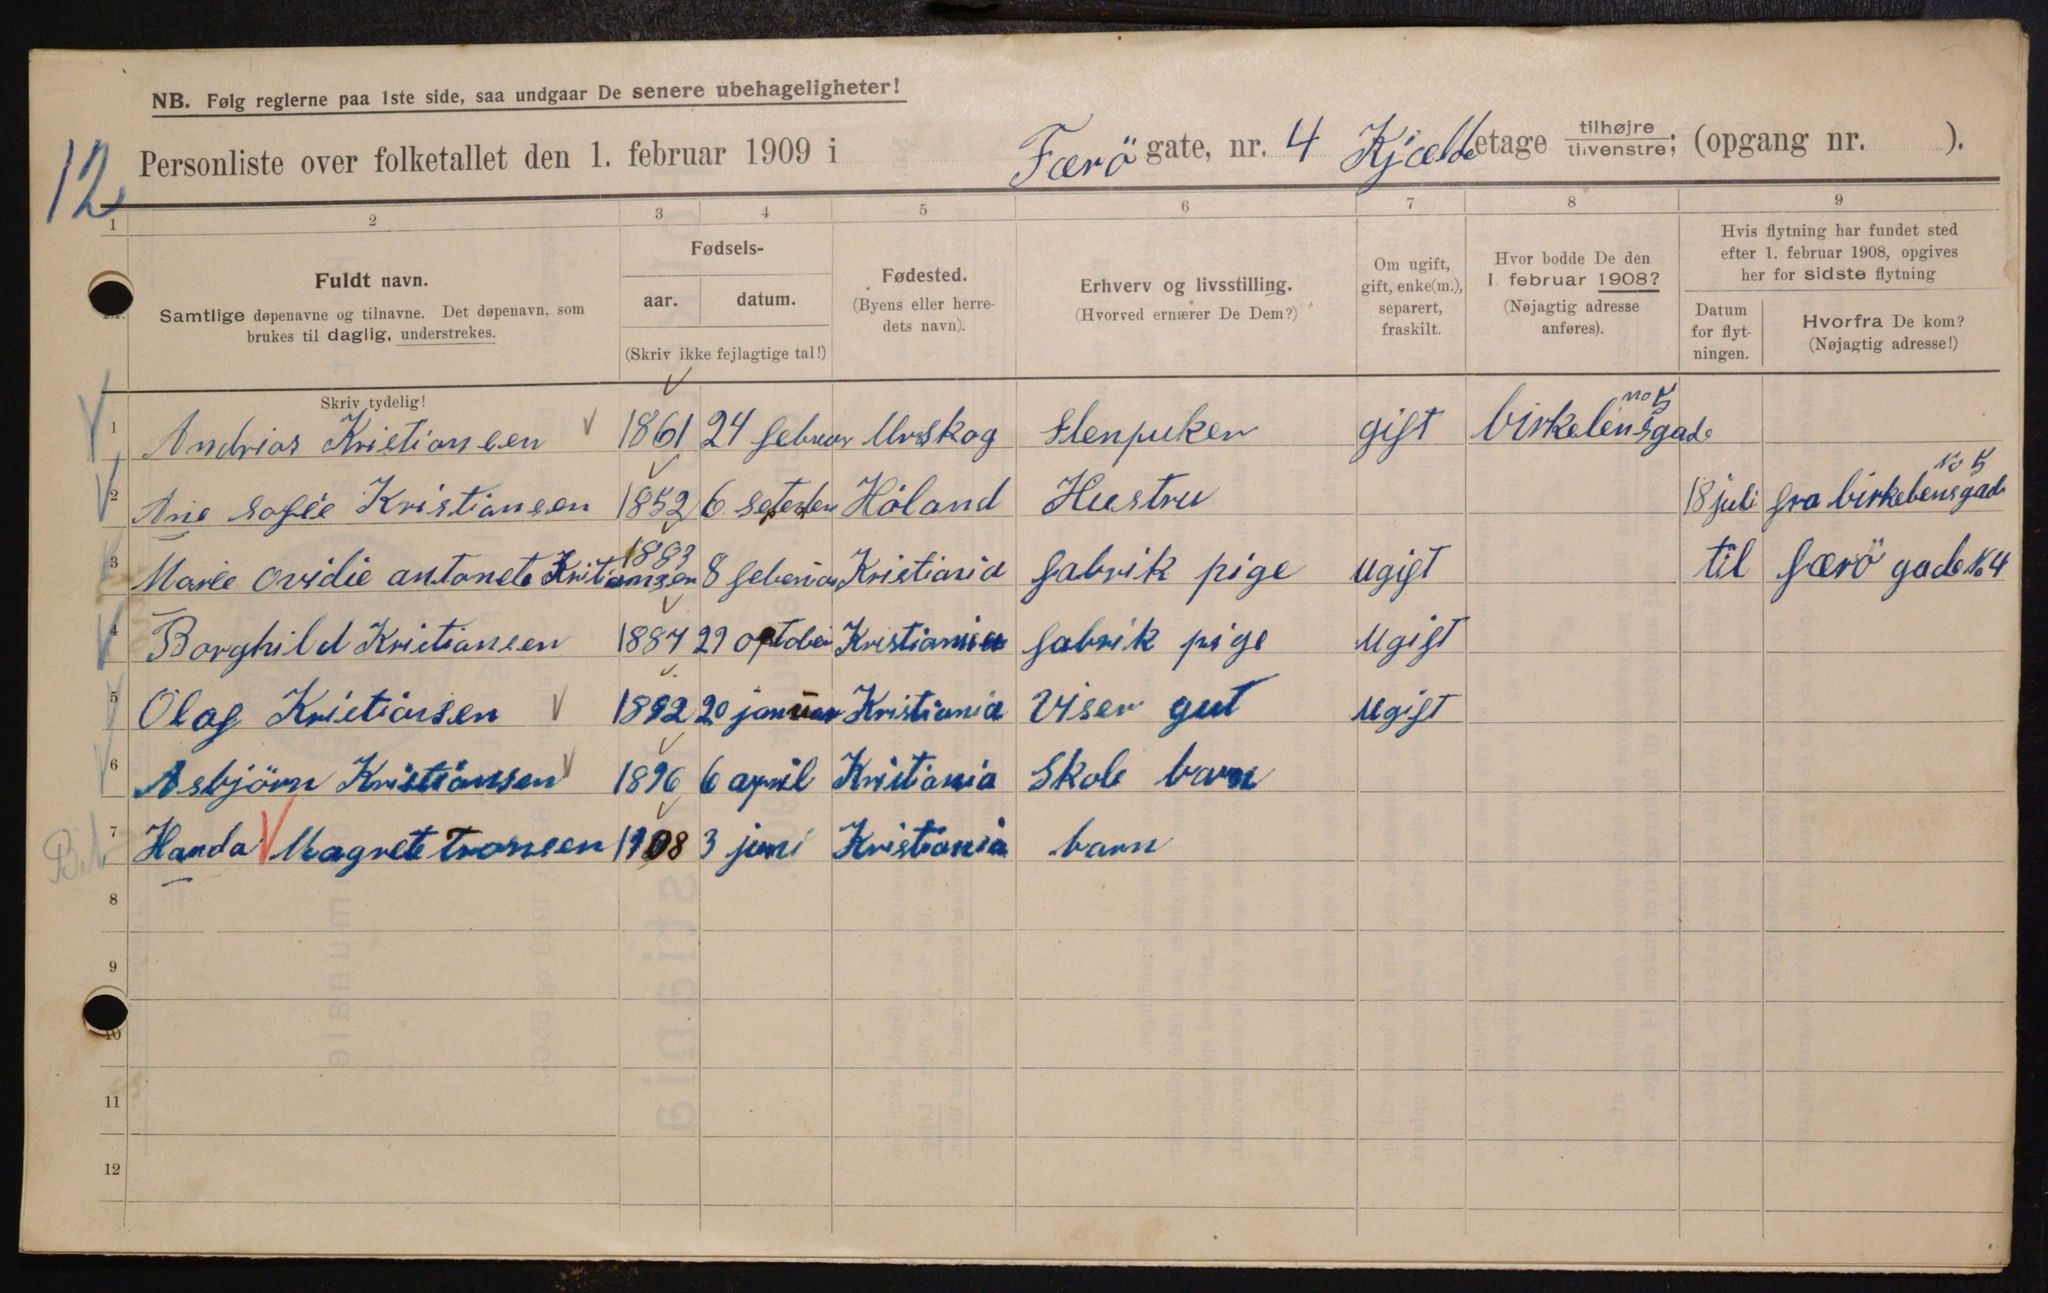 NB. Følg reglerne paa 1ste side, saa undgaar De senere ubehageligheter!
12
Personliste over folketallet den 1. februar 1909 i Færö gate, nr. 4 Kjælde etage tilhøjre tilvenstre; (opgang nr. ).
1 2 3 4 5 6 7 8 9
Fuldt navn.
Samtlige døpenavne og tilnavne. Det døpenavn, som
brukes til daglig, understrekes.
Skriv tydelig!
Fødsels-
aar. datum.
(Skriv ikke fejlagtige tal!)
Fødested.
(Byens eller herre-
dets navn).
Erhverv og livsstilling.
(Hvorved ernærer De Dem?)
Om ugift,
gift, enke(m.),
separert,
fraskilt.
Hvor bodde De den
1. februar 1908?
(Nøjagtig adresse
anføres).
Hvis flytning har fundet sted
efter 1. februar 1908, opgives
her for sidste flytning
Datum
for flyt-
ningen.
Hvorfra De kom?
(Nøjagtig adresse!)
1 Andrias Kristiansen 1861 24 februar Urskog Stenpuker gift birkebensgade no 5
2 Ane Sofie Kristiansen 1852 6 Høland Hustru 18 juli fra birkebensgade No 5
3 Marie ovidie antonete Kristiansen 1883 8 Kristiania fabrik pige ugift til færö gade No 4
4 Borghild Kristiansen 1887 29 Kristiania fabrik pige ugift
5 Olaf Kristiansen 1892 20 januar Kristiania Viser gut ugift
6 Asbjörn Kristiansen 1896 6 april Kristiania Skole barn
7 Handa Magrete Tronsen 1908 3 juni Kristiania barn
8
9
10
11
12